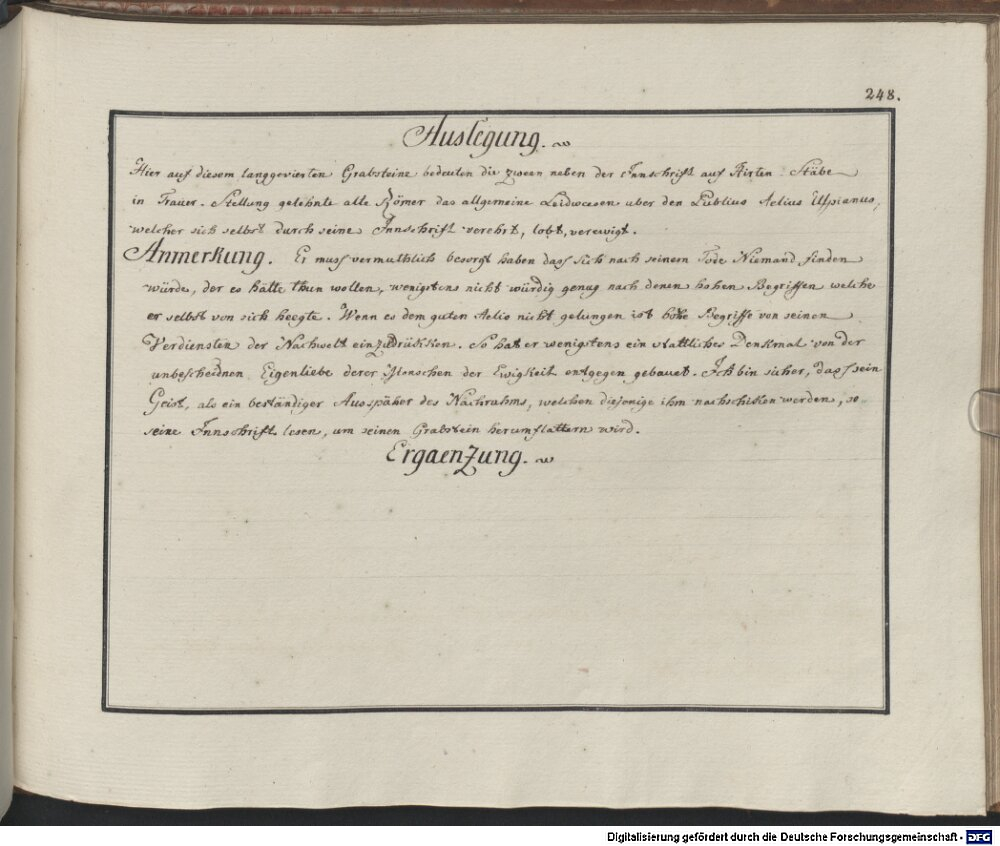 248.
Auslegung.
Hier auf diesem langgevierten Grabsteine bedeuten die zween neben der Innschrift auf Hirten-Stäbe
in Trauer-Stellung gelehnte alte Römer das allgemeine Leidwesen uber den Publius Aelius Ulpianus,
welcher sich selbst durch seine Innschrift verehrt, lobt, verewigt.
Anmerkung. Er muss vermuthlich besorgt haben dass sich nach seinem Tode Niemand finden
würde, der es hätte thun wollen, wenigstens nicht würdig genug nach denen hohen Begriffen welche
er selbst von sich heegte. Wenn es dem guten Aelio nicht gelungen ist hohe Begriffe von seinen
Verdiensten der Nachwelt einzudrükken. So hat er wenigstens ein stattliches Denkmal von der
unbescheidnen Eigenliebe derer Menschen der Ewigkeit entgegen gebauet. Ich bin sicher, dass sein
Geist, als ein beständiger Ausspäher des Nachruhms, welchen diejenige ihm nachschiken werden, so
seine Innschrift lesen, um seinen Grabstein herumflattern wird.
Ergaenzung.
Digitalisierung gefördert durch die Deutsche Forschungsgemeinschaft - DFG